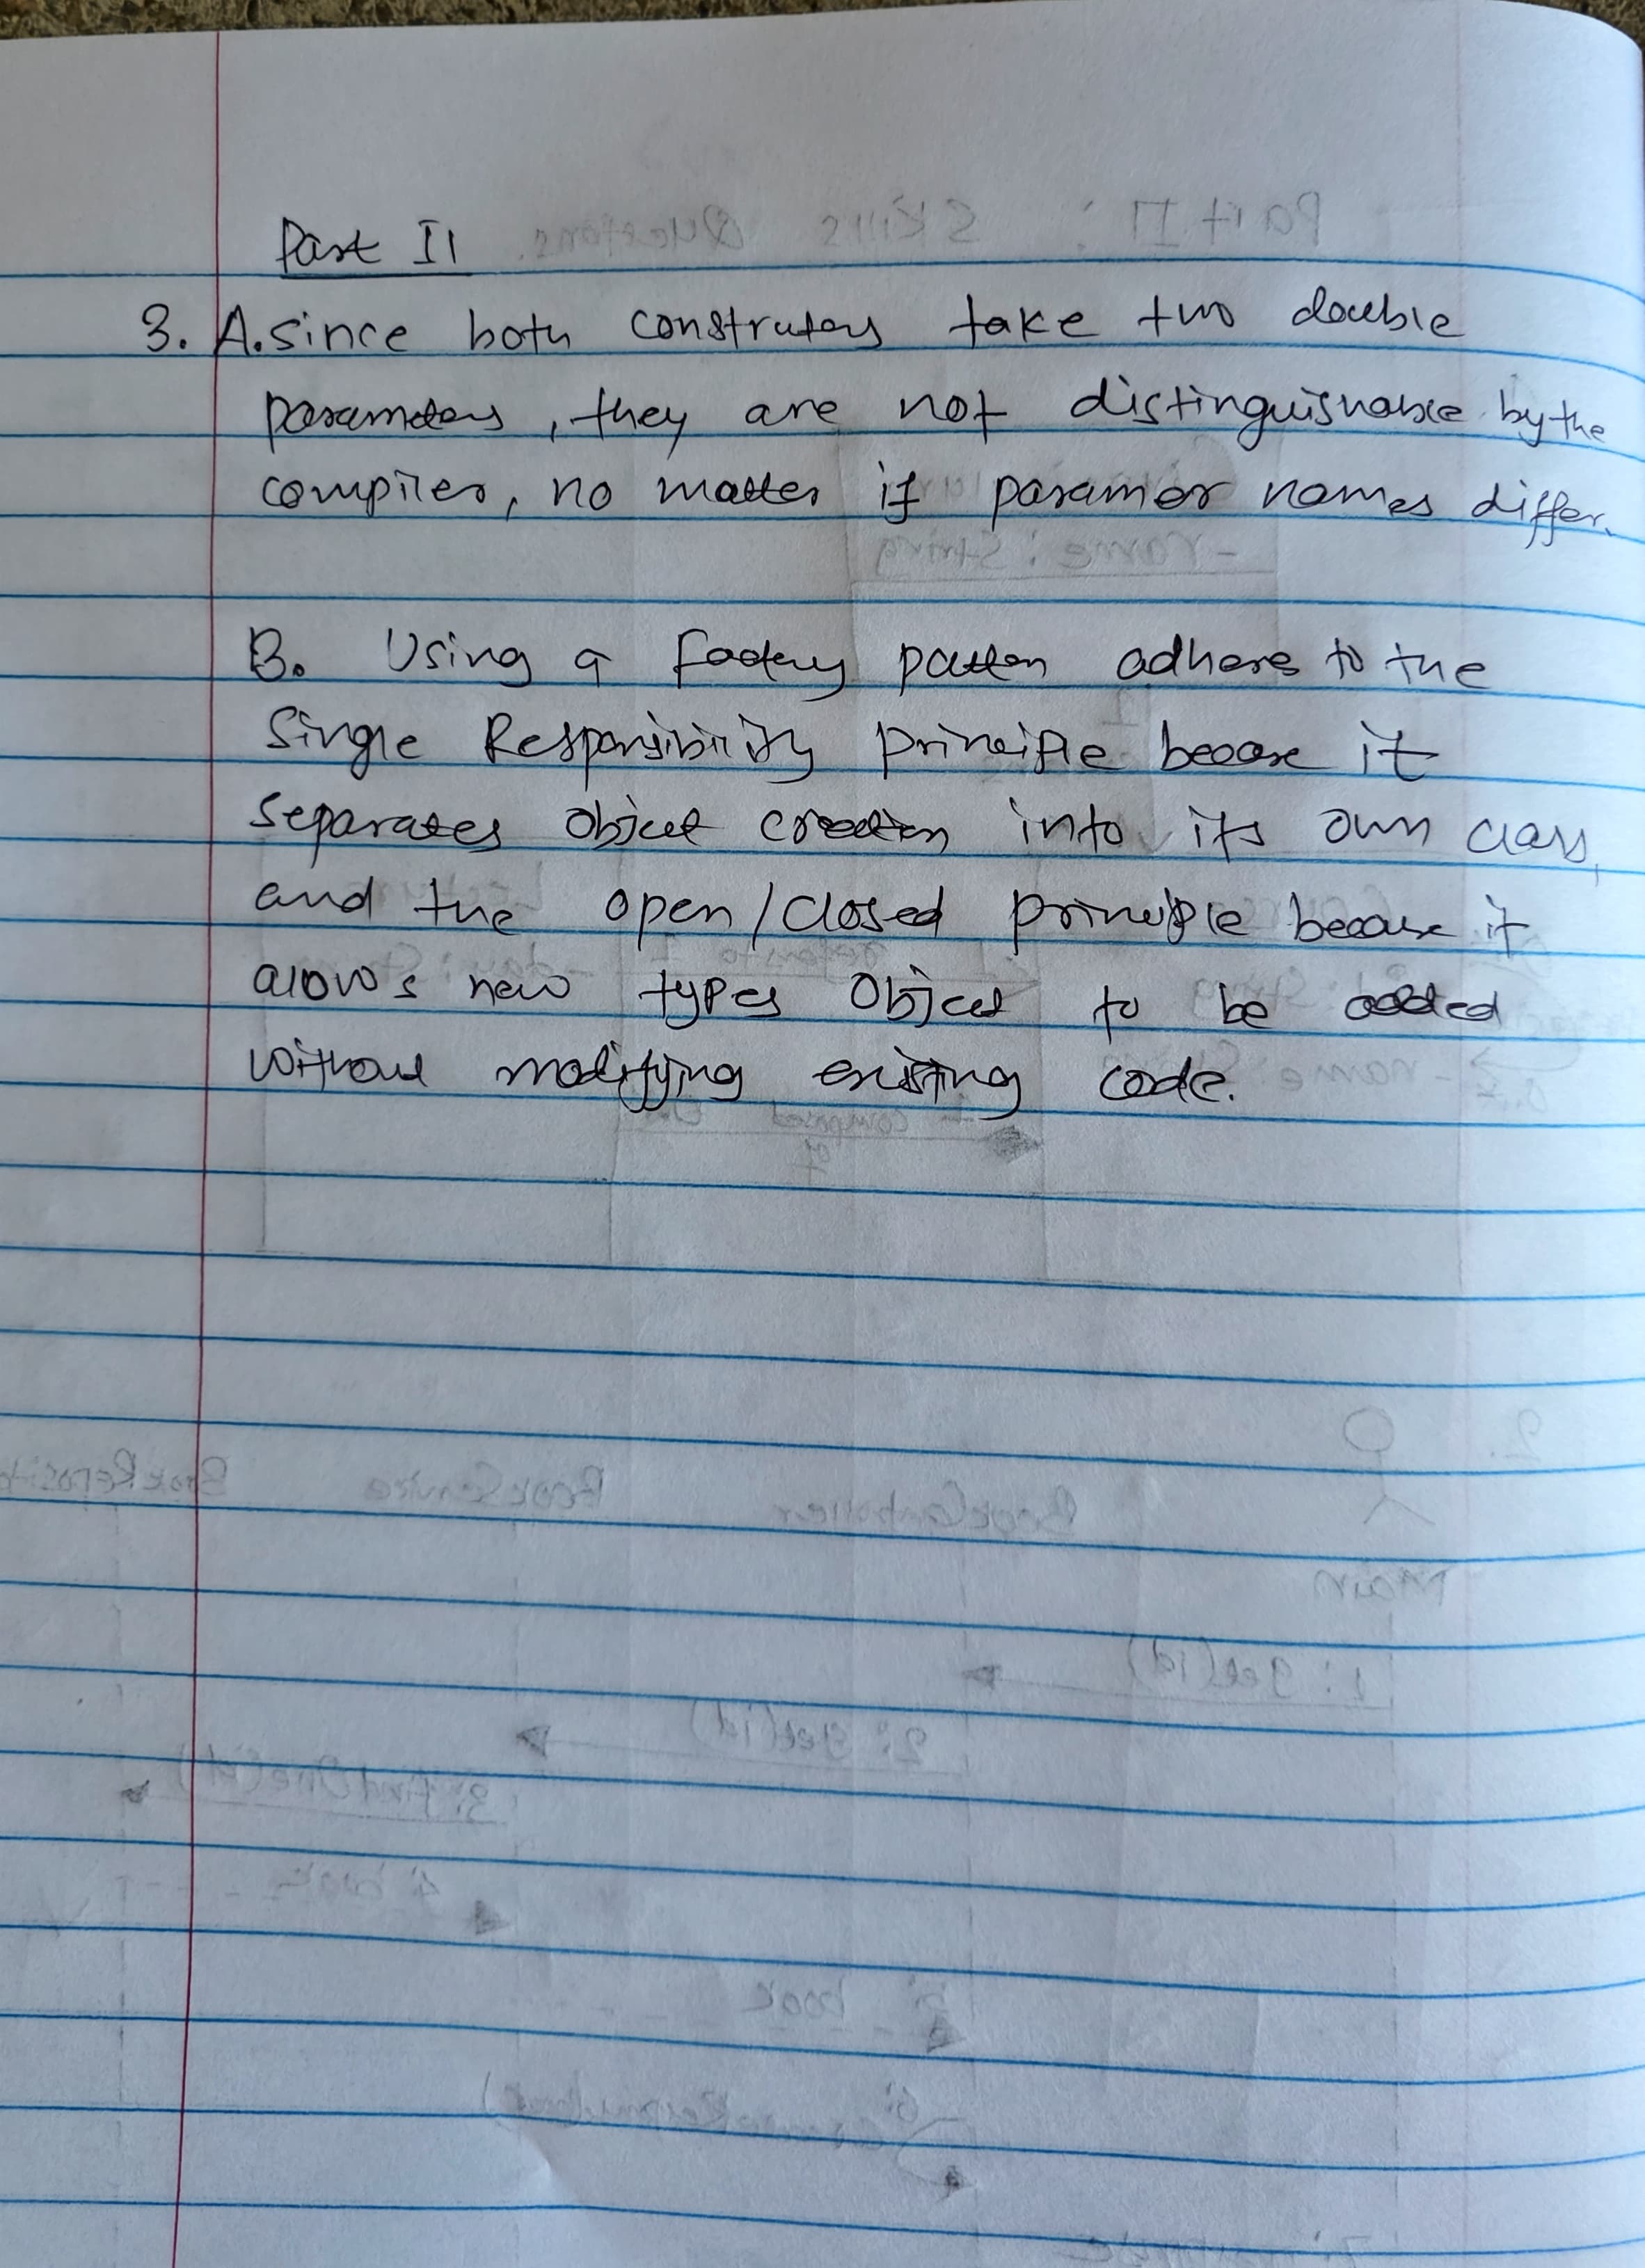 Part II
3. A. since both construtors take two double
parameters, they are not distinguishable by the
compiler, no matter if paramer names differ.
B. Using a factory pattern adheres to the
Single Responsibility principle because it
separates object creation into its own class,
and the open/closed principle because it
alows new types object to be added
without modifying existing code.